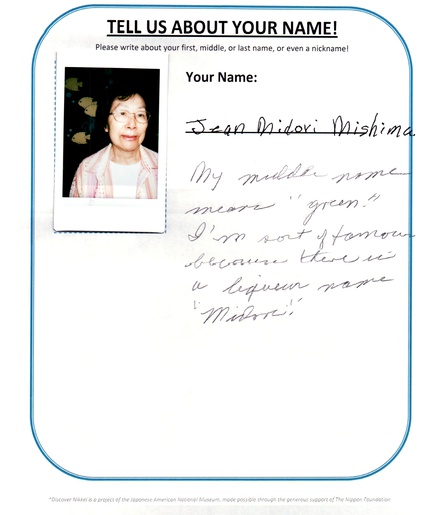 TELL US ABOUT YOUR NAME!
Please write about your first, middle, or last name, or even a nickname!
Your Name:
Jean Midori Mishima
My middle name
means "green."
I'm sort of famous
because there is
a liqueur name
"Midori."
*Discover Nikkei is a project of the Japanese American National Museum, made possible through the generous support of The Nippon Foundation